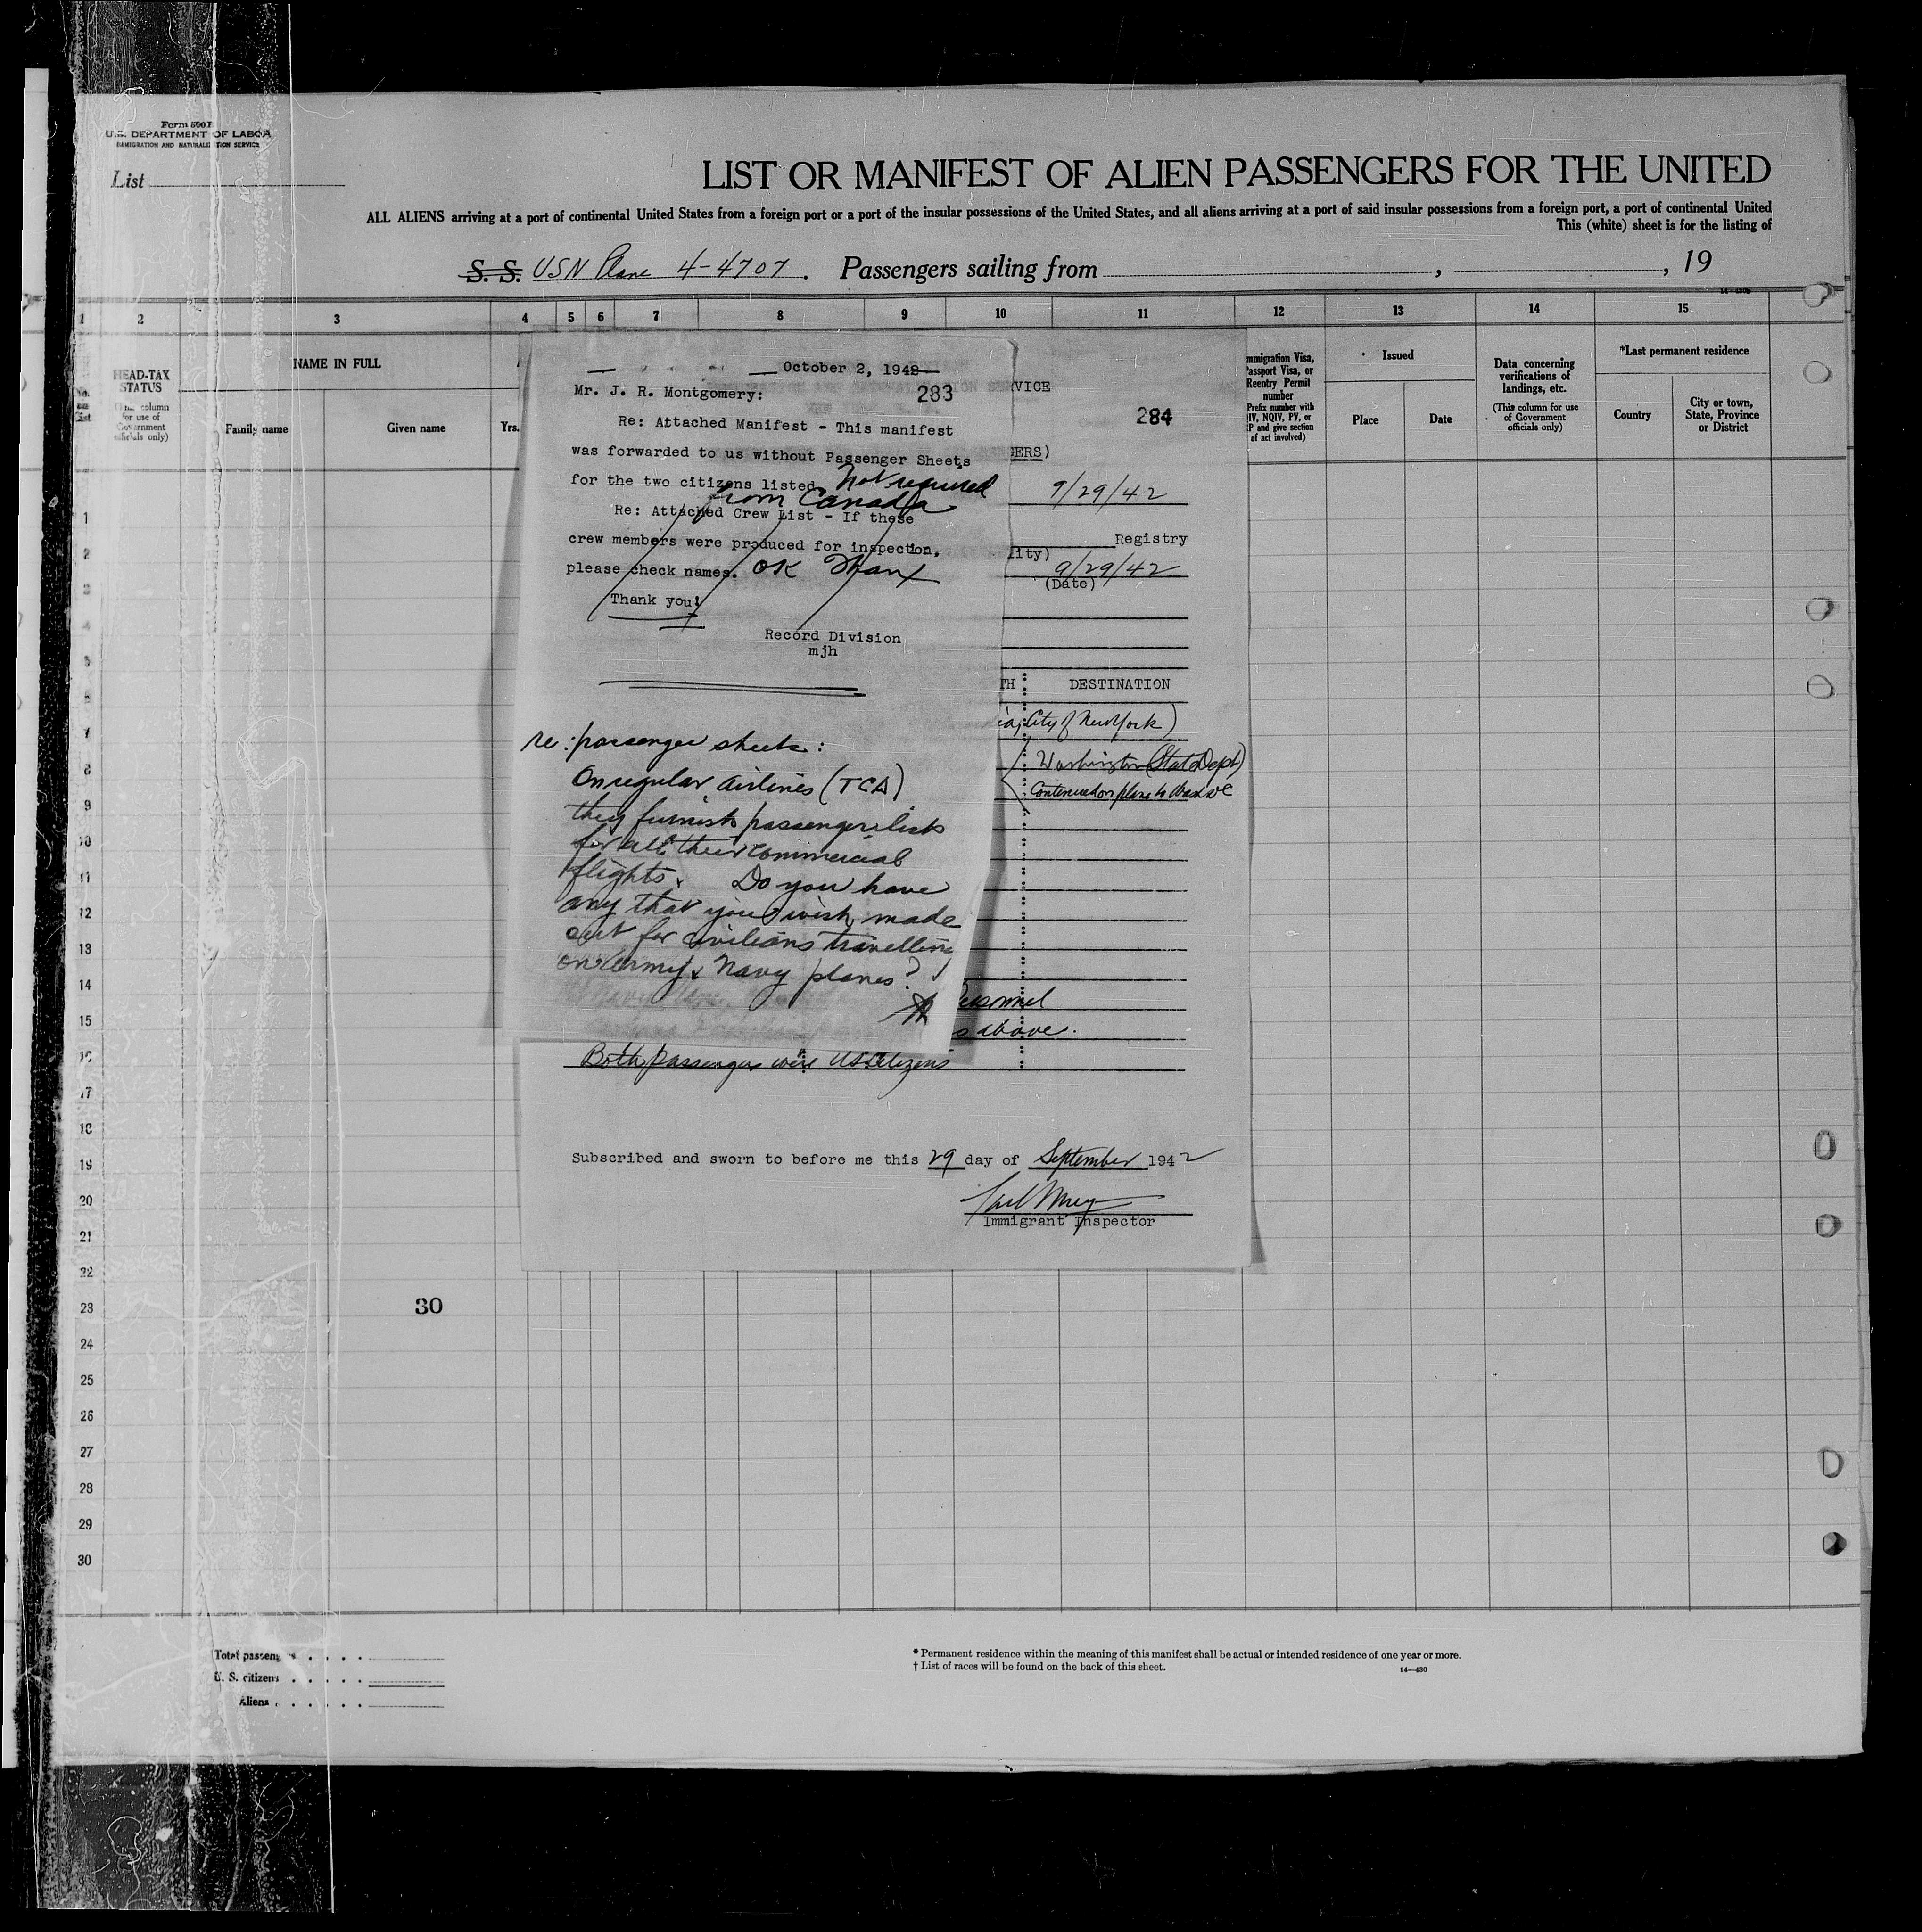 Form 500 B
U.S. DEPARTMENT OF LABOR
IMMIGRATION AND NATURALIZATION SERVICE
List
LIST OR MANIFEST OF ALIEN PASSENGERS FOR THE UNITED
ALL ALIENS arriving at a port of continental United States from a foreign port or a port of the insular possessions of the United States, and all aliens arriving at a port of said insular possessions from a foreign port, a port of continental United
This (white) sheet is for the listing of
S. S. USN Plane 4-4707. Passengers sailing from , , 19
1 2 3 4 5 6 7 8 9 10 11 12 13 14 15
No. on List
HEAD-TAX STATUS
(This column for use of Government officials only)
NAME IN FULL
Family name Given name
Yrs.
Immigration Visa, Passport Visa, or Reentry Permit number
(Prefix number with QIV, NQIV, PV, or RP and give section of act involved)
Issued
Place Date
Data concerning verifications of landings, etc.
(This column for use of Government officials only)
*Last permanent residence
Country
City or town, State, Province or District
October 2, 1942
Mr. J. R. Montgomery:
283
Re: Attached Manifest - This manifest
was forwarded to us without Passenger Sheets
for the two citizens listed. Not required
from Canada
Re: Attached Crew List - If these
crew members were produced for inspection,
please check names. OK
Thank you!
Record Division
mjh
re: passenger sheets:
On regular airlines (TCA)
they furnish passenger lists
for all their commercial
flights. Do you have
any that you wish made
out for civilians travelling
on Army & Navy planes?
VICE
284
GERS)
9/29/42
Registry
lity)
9/29/42
(Date)
TH DESTINATION
City of New York)
Washington (State Dept)
Personnel
s above.
Both passengers were US Citizens
Subscribed and sworn to before me this 29 day of September 1942
Immigrant Inspector
1
2
3
4
5
6
7
8
9
10
11
12
13
14
15
16
17
18
19
20
21
22
23
24
25
26
27
28
29
30
30
Total passengers
U. S. citizens
Aliens
* Permanent residence within the meaning of this manifest shall be actual or intended residence of one year or more.
† List of races will be found on the back of this sheet.
14—430